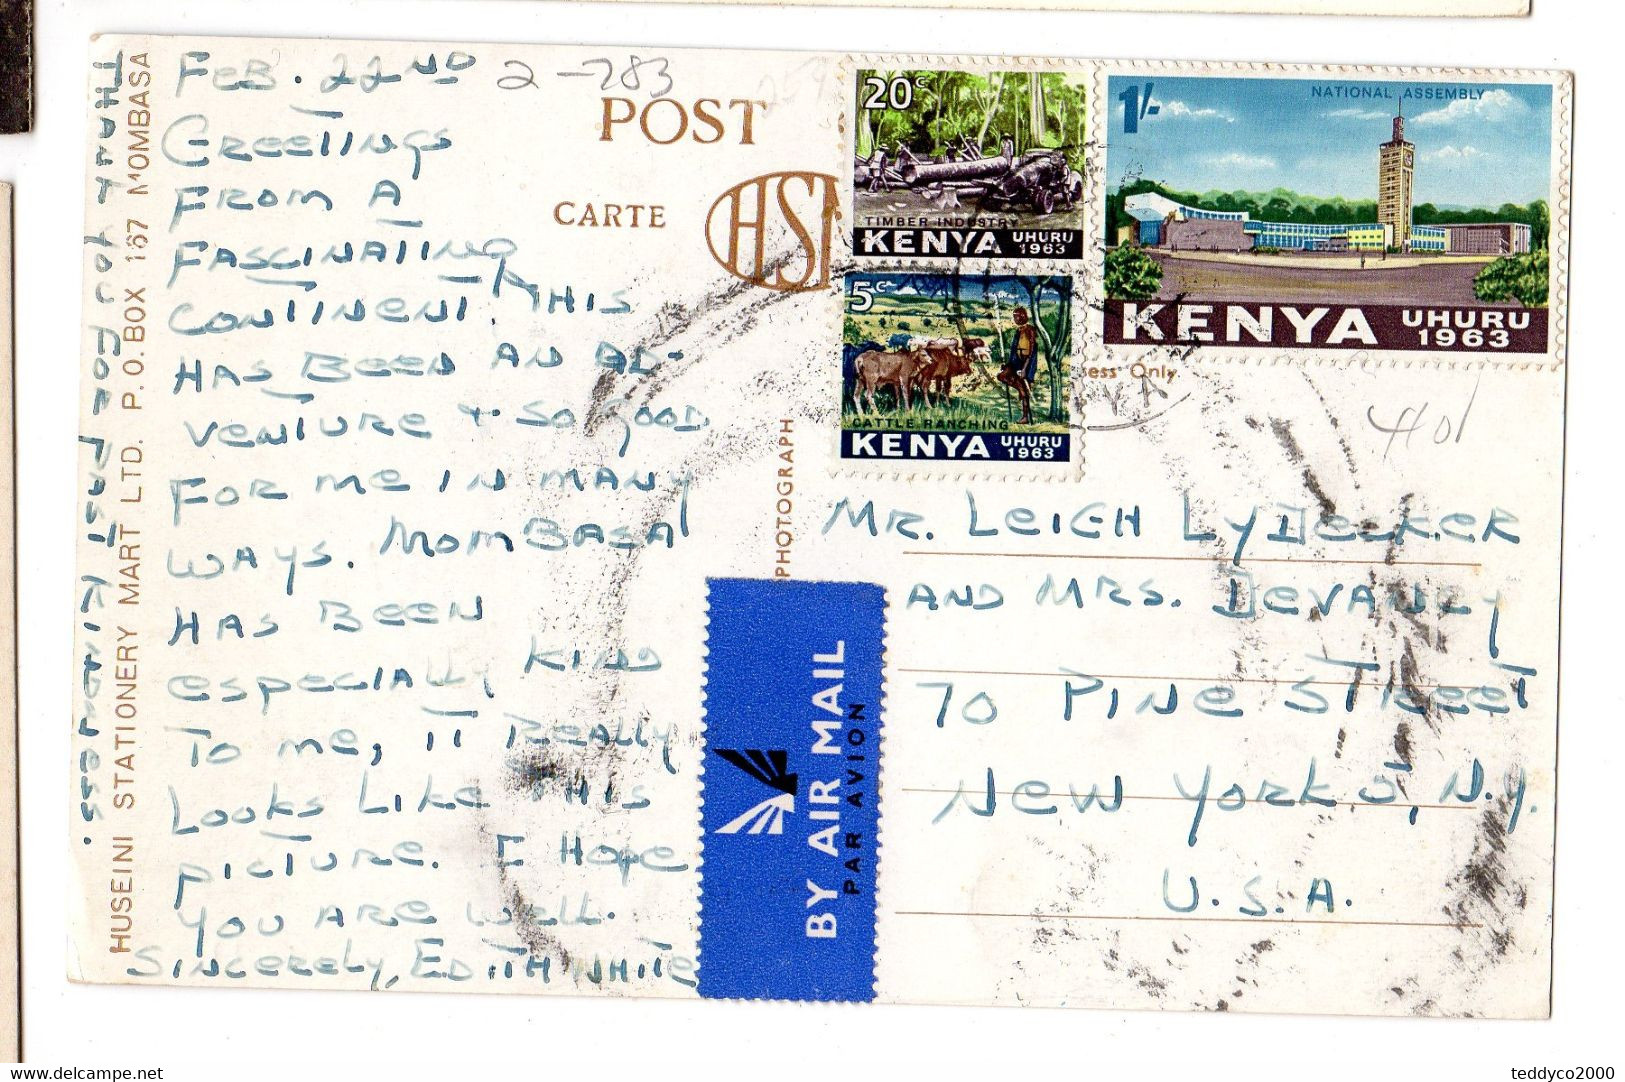 FEB. 22ND 2-783
GREETINGS
FROM A
FASCINATING
CONTINENT. THIS
HAS BEEN AN AD-
VENTURE & SO GOOD
FOR ME IN MANY
WAYS. MOMBASA
HAS BEEN
ESPECIALLY KIND
TO ME, IT REALLY
LOOKS LIKE THIS
PICTURE. I HOPE
YOU ARE WELL.
SINCERELY, EDITH WHITE
THANK YOU FOR PAST KINDNESS.
HUSEINI STATIONERY MART LTD. P.O.BOX 167 MOMBASA
POST
CARTE
HSM
PHOTOGRAPH
20c
TIMBER INDUSTRY
KENYA UHURU 1963
5c
CATTLE RANCHING
KENYA UHURU 1963
1/-
NATIONAL ASSEMBLY
KENYA UHURU 1963
Only
401
MR. LEIGH LYDECKER
AND MRS. DEVANEY
70 PINE STREET
NEW YORK 5, N.Y.
U.S.A.
BY AIR MAIL
PAR AVION
delcampe.net
teddyco2000